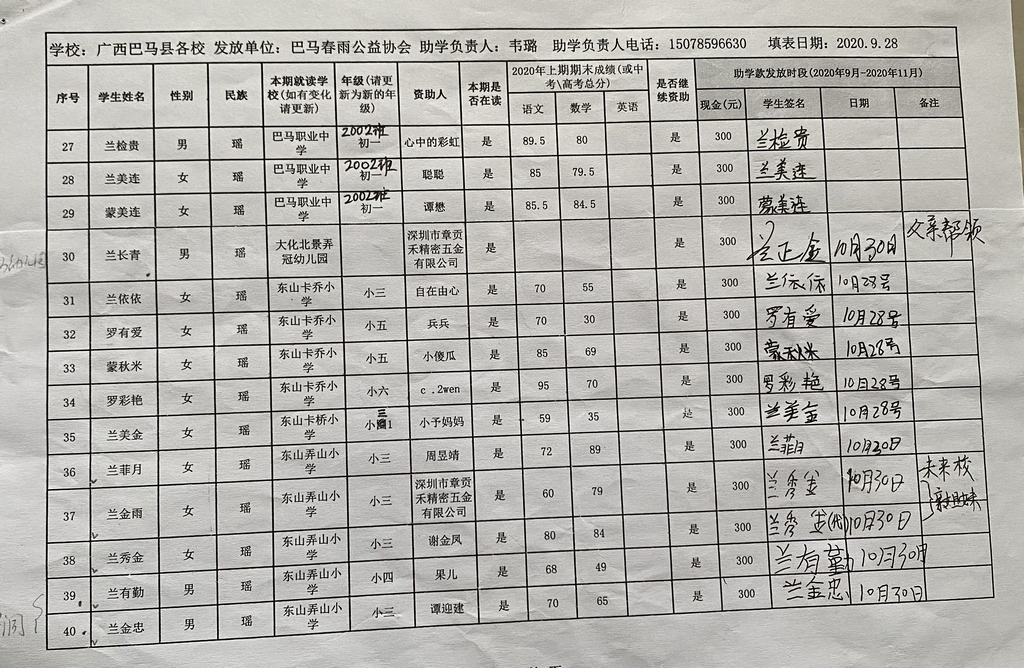 学校：广西巴马县各校 发放单位：巴马春雨公益协会 助学负责人：韦璐 助学负责人电话：15078596630 填表日期：2020.9.28
序号 学生姓名 性别 民族 本期就读学校(如有变化请更新) 年级(请更新为新的年级) 资助人 本期是否在读 2020年上期期末成绩(或中考\高考总分) 是否继续资助 助学款发放时段(2020年9月-2020年11月)
语文 数学 英语 现金(元) 学生签名 日期 备注
27 兰检贵 男 瑶 巴马职业中学 2002班 初一 心中的彩虹 是 89.5 80 是 300 兰检贵
28 兰美连 女 瑶 巴马职业中学 2002班 初一 聪聪 是 85 79.5 是 300 兰美连
29 蒙美连 女 瑶 巴马职业中学 2002班 初一 谭懋 是 85.5 84.5 是 300 蒙美连
30 兰长青 男 瑶 大化北景弄冠幼儿园 深圳市章贡禾精密五金有限公司 是 是 300 兰正金 10月30日 父亲帮领
31 兰依依 女 瑶 东山卡乔小学 小三 自在由心 是 70 55 是 300 兰依依 10月28号
32 罗有爱 女 瑶 东山卡乔小学 小五 兵兵 是 70 30 是 300 罗有爱 10月28号
33 蒙秋米 女 瑶 东山卡乔小学 小五 小傻瓜 是 85 69 是 300 蒙秋米 10月28号
34 罗彩艳 女 瑶 东山卡乔小学 小六 c .2wen 是 95 70 是 300 罗彩艳 10月28号
35 兰美金 女 瑶 东山卡桥小学 小三1 小予妈妈 是 59 35 是 300 兰美金 10月28号
36 兰菲月 女 瑶 东山弄山小学 小三 周昱靖 是 72 89 是 300 兰菲月 10月30日
37 兰金雨 女 瑶 东山弄山小学 小三 深圳市章贡禾精密五金有限公司 是 60 79 是 300 兰秀金 10月30日 未来校
38 兰秀金 女 瑶 东山弄山小学 小三 谢金凤 是 80 84 是 300 兰秀金(代) 10月30日
39 兰有勤 男 瑶 东山弄山小学 小四 果儿 是 68 49 是 300 兰有勤 10月30日
40 兰金忠 男 瑶 东山弄山小学 小三 谭迎建 是 70 65 是 300 兰金忠 10月30日